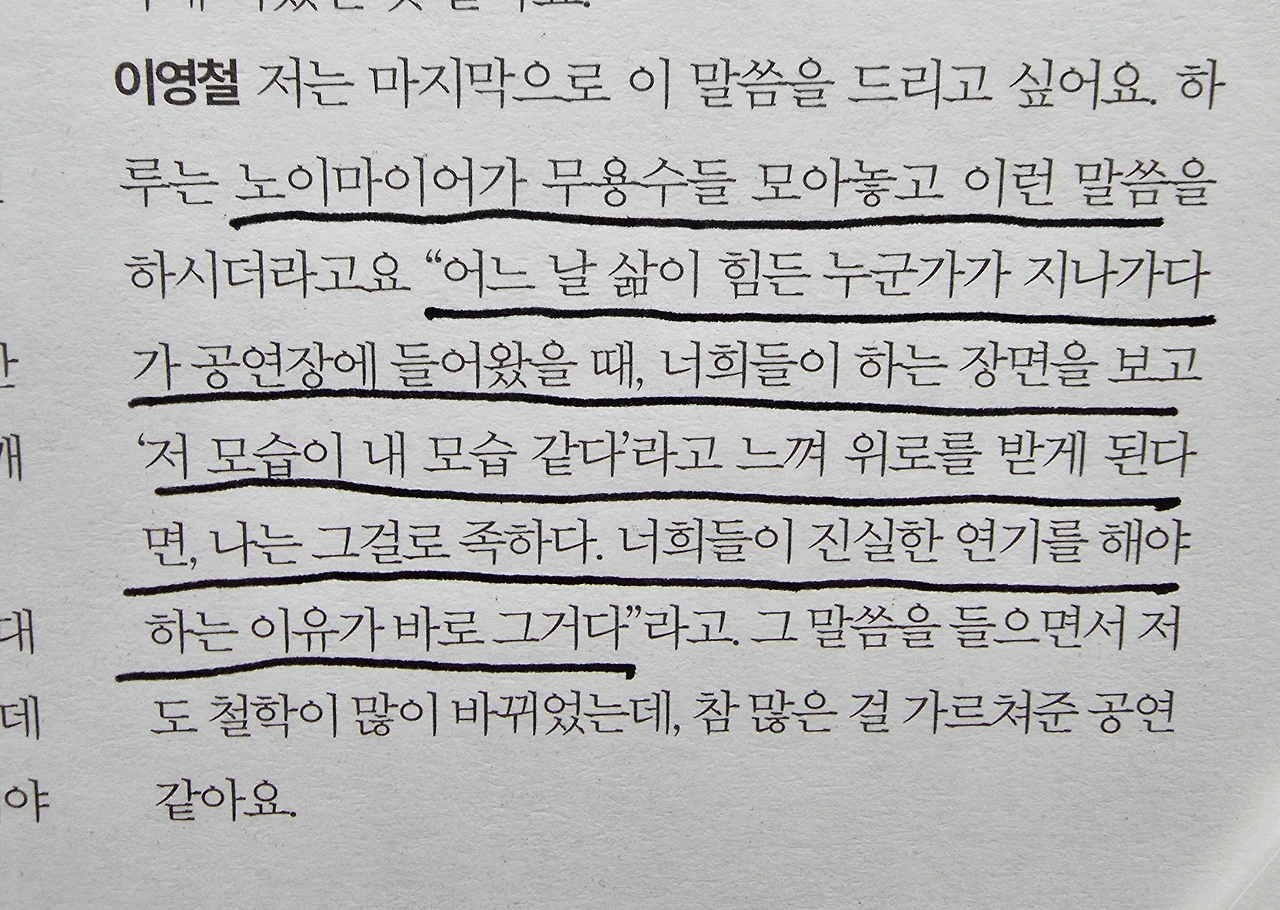 이영철 저는 마지막으로 이 말씀을 드리고 싶어요. 하
루는 노이마이어가 무용수들 모아놓고 이런 말씀을
하시더라고요 “어느 날 삶이 힘든 누군가가 지나가다
가 공연장에 들어왔을 때, 너희들이 하는 장면을 보고
‘저 모습이 내 모습 같다’라고 느껴 위로를 받게 된다
면, 나는 그걸로 족하다. 너희들이 진실한 연기를 해야
하는 이유가 바로 그거다”라고. 그 말씀을 들으면서 저
도 철학이 많이 바뀌었는데, 참 많은 걸 가르쳐준 공연
같아요.
대
데
야